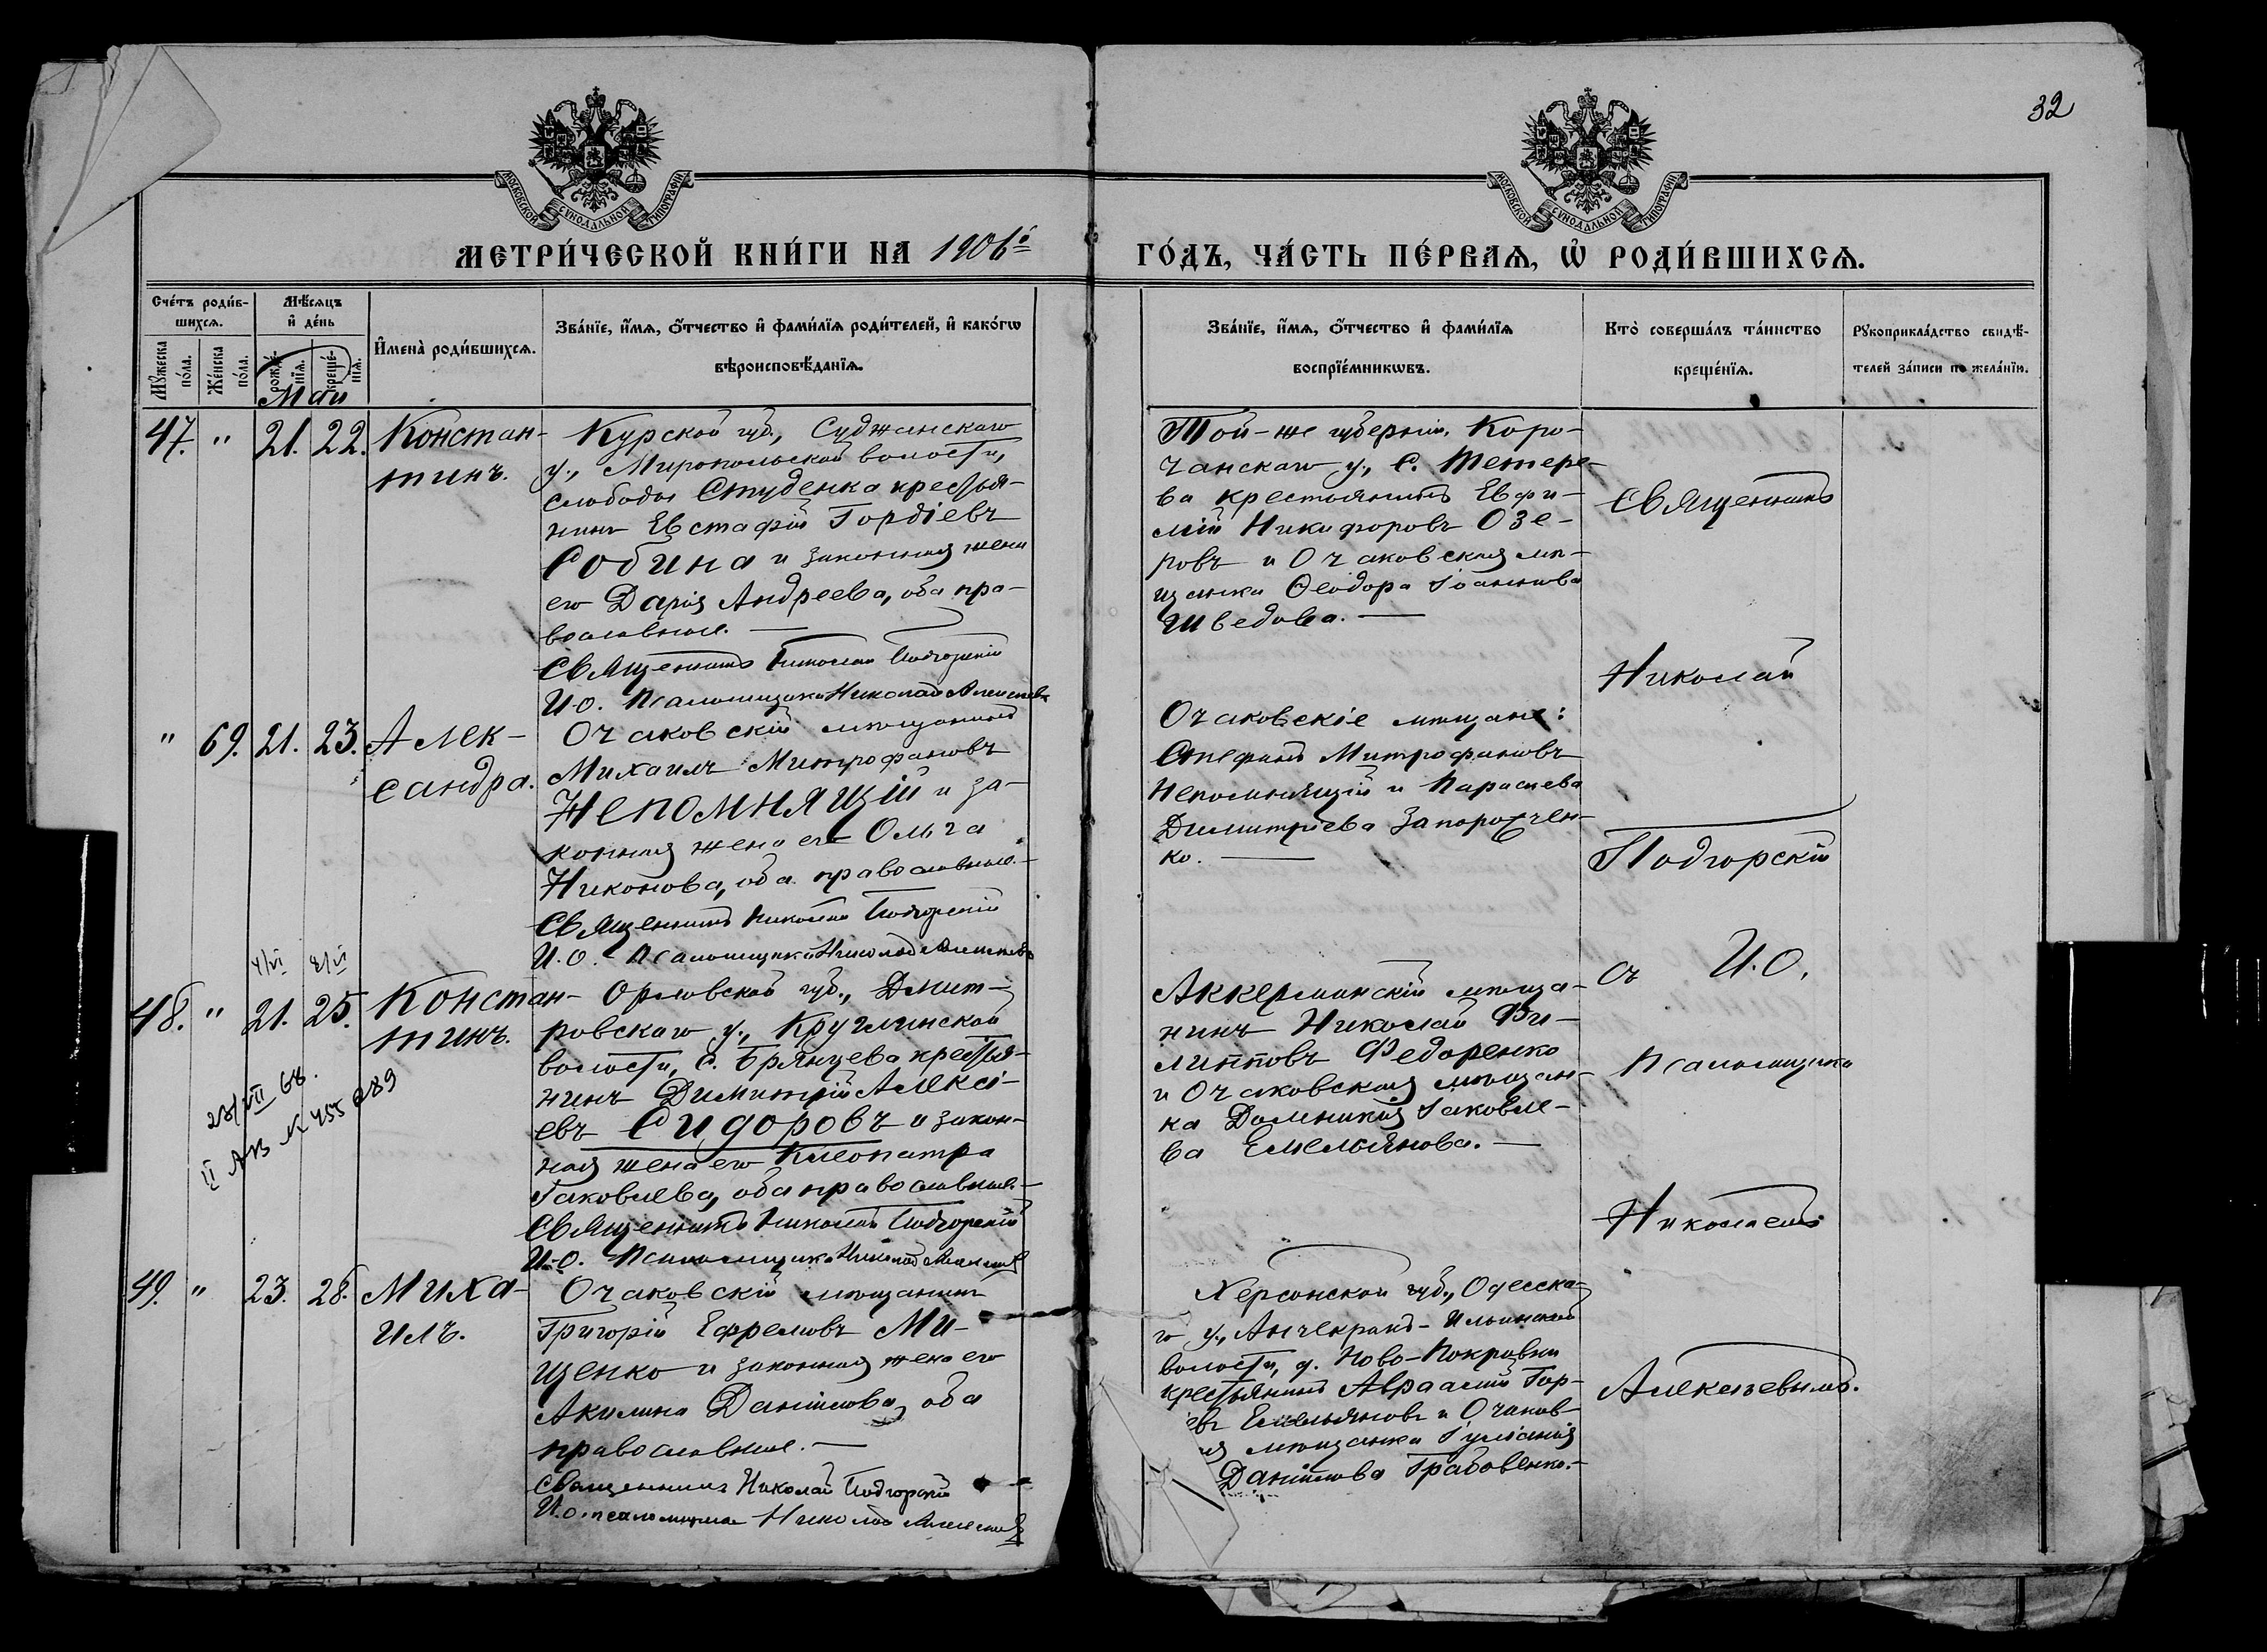 32
МОСКОВСКОЙ СѴНОДАЛЬНОЙ ТИПОГРАФІИ
МОСКОВСКОЙ СѴНОДАЛЬНОЙ ТИПОГРАФІИ
МЕТРИ́ЧЕСКОЙ КНИ́ГИ НА 1906й ГО́ДЪ, ЧА́СТЬ ПЕ́РВАѦ, Ѡ҆ РОДИ́ВШИХСѦ.
Сче́тъ роди́в-
шихсѧ.
Мꙋ́жеска по́ла.
Же́нска по́ла.
Мѣ́сѧцъ
и҆ де́нь
рожде́нїѧ.
креще́нїѧ.
Май
И҆мена̀ роди́вшихсѧ.
Зва́нїе, и҆́мѧ, ѻ҆́тчество и҆ фами́лїѧ роди́телей, и҆ како́гѡ
вѣроисповѣ́данїѧ.
Зва́нїе, и҆́мѧ, ѻ҆́тчество и҆ фами́лїѧ
воспрїе́мникѡвъ.
Кто̀ соверша́лъ та́инство
креще́нїѧ.
Рꙋкоприкла́дство свидѣ́-
телей за́писи по жела́нїю.
47. " 21. 22. Констан-
тинъ.
Курской губ., Суджанскаго
у., Миропольской волости,
слободы Студенка крестья-
нинъ Евстафій Гордіевъ
Собина и законная жена
его Дарія Андреева, оба пра-
вославные. —
Священникъ Николай Подгорскій
И.о. Псаломщика Николай Алексѣевъ
Той-же губерніи, Коро-
чанскаго у., с. Тетере-
ва крестьянинъ Евфи-
мій Никифоровъ Озе-
ровъ и Очаковская мѣ-
щанка Ѳеодора Іоаннова
Шведова. —
" 69. 21. 23. Алек-
сандра.
Очаковскій мѣщанинъ
Михаилъ Митрофановъ
Непомнящій и за-
конная жена его Ольга
Никонова, оба православные. —
Священникъ Николай Подгорскій
И.о. Псаломщика Николай Алексѣевъ
Очаковскіе мѣщане:
Стефанъ Митрофановъ
Непомнящій и Параскева
Димитріева Запорожчен-
ко. —
4/VI 8/VI
48. " 21. 25. Констан-
тинъ.
23/VII 68.
II АВ № 455289
Орловской губ., Дмит-
ровскаго у., Круглинской
волости, с. Брянцева крестья-
нинъ Димитрій Алексі-
евъ Сидоровъ и закон-
ная жена его Клеопатра
Іаковлева, оба православные. —
Священникъ Николай Подгорскій
И.о. Псаломщика Николай Алексѣевъ
Аккерманскій мѣща-
нинъ Николай Фи-
липповъ Федоренко
и Очаковская мѣщан-
ка Домникія Іаковле-
ва Емельянова. —
49. " 23. 28. Миха-
илъ.
Очаковскій мѣщанинъ
Григорій Ефремовъ Ми-
щенко и законная жена его
Акилина Даніилова, оба
православные. —
Священникъ Николай Подгорскій
И.о. псаломщика Николай Алексѣевъ
Херсонской губ., Одесска-
го у., Анчекракъ-Ильинской
волости, д. Ново-Покровки
крестьянинъ Авраамій Гор-
евъ Емельяновъ и Очаков-
ая мѣщанка Іуліанія
Даніилова Грабовенко. —
Священникъ
Николай
Подгорскій
съ И.О.
Псаломщика
Николаемъ
Алексѣевымъ.